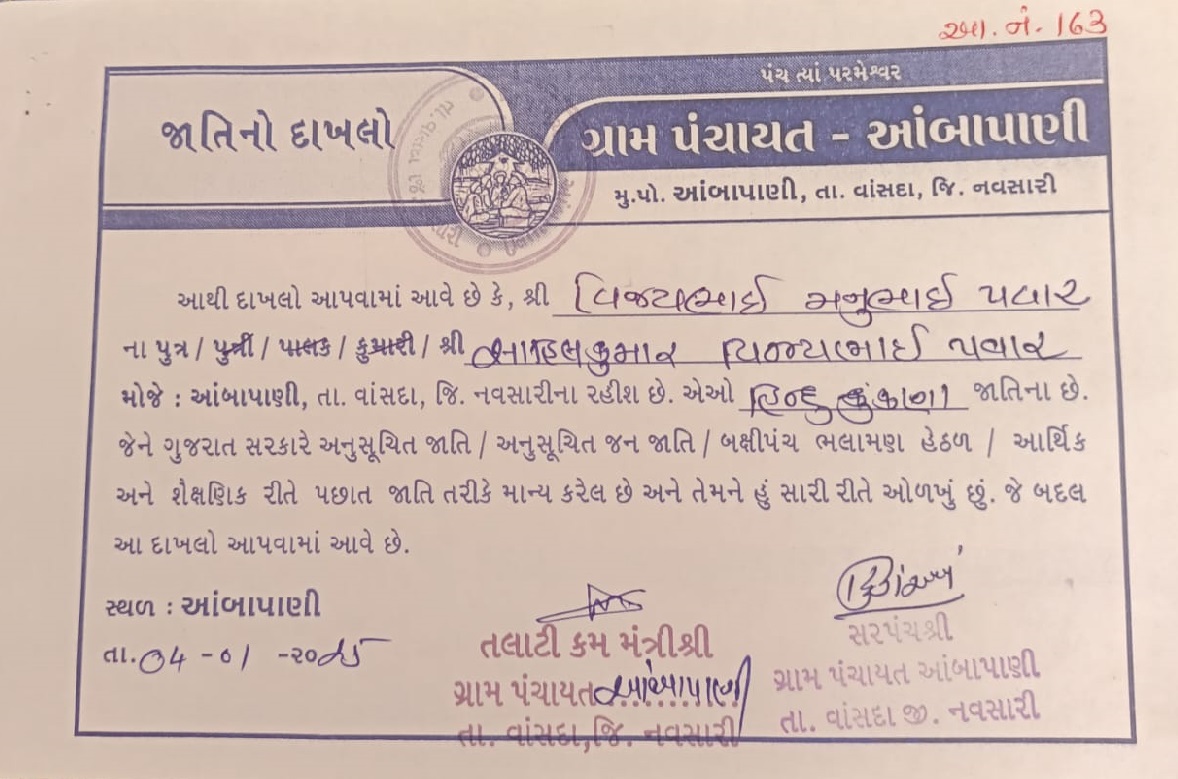 આ. નં. 163
પંચ ત્યાં પરમેશ્વર
જાતિનો દાખલો
ગ્રામ પંચાયત - આંબાપાણી
મુ.પો. આંબાપાણી, તા. વાંસદા, જિ. નવસારી
આથી દાખલો આપવામાં આવે છે કે, શ્રી વિજયભાઈ મનુભાઈ પવાર
ના પુત્ર / પુત્રી / પાલક / કુમારી / શ્રી સાહિલકુમાર વિજયભાઈ પવાર
મોજે : આંબાપાણી, તા. વાંસદા, જિ. નવસારીના રહીશ છે. એઓ હિન્દુ કુંકણા જાતિના છે.
જેને ગુજરાત સરકારે અનુસૂચિત જાતિ / અનુસૂચિત જન જાતિ / બક્ષીપંચ ભલામણ હેઠળ / આર્થિક
અને શૈક્ષણિક રીતે પછાત જાતિ તરીકે માન્ય કરેલ છે અને તેમને હું સારી રીતે ઓળખું છું. જે બદલ
આ દાખલો આપવામાં આવે છે.
સ્થળ : આંબાપાણી
તા. 04 -01 -૨૦૨૫
તલાટી કમ મંત્રીશ્રી
ગ્રામ પંચાયત આંબાપાણી
તા. વાંસદા,જિ. નવસારી
સરપંચશ્રી
ગ્રામ પંચાયત આંબાપાણી
તા. વાંસદા જી. નવસારી